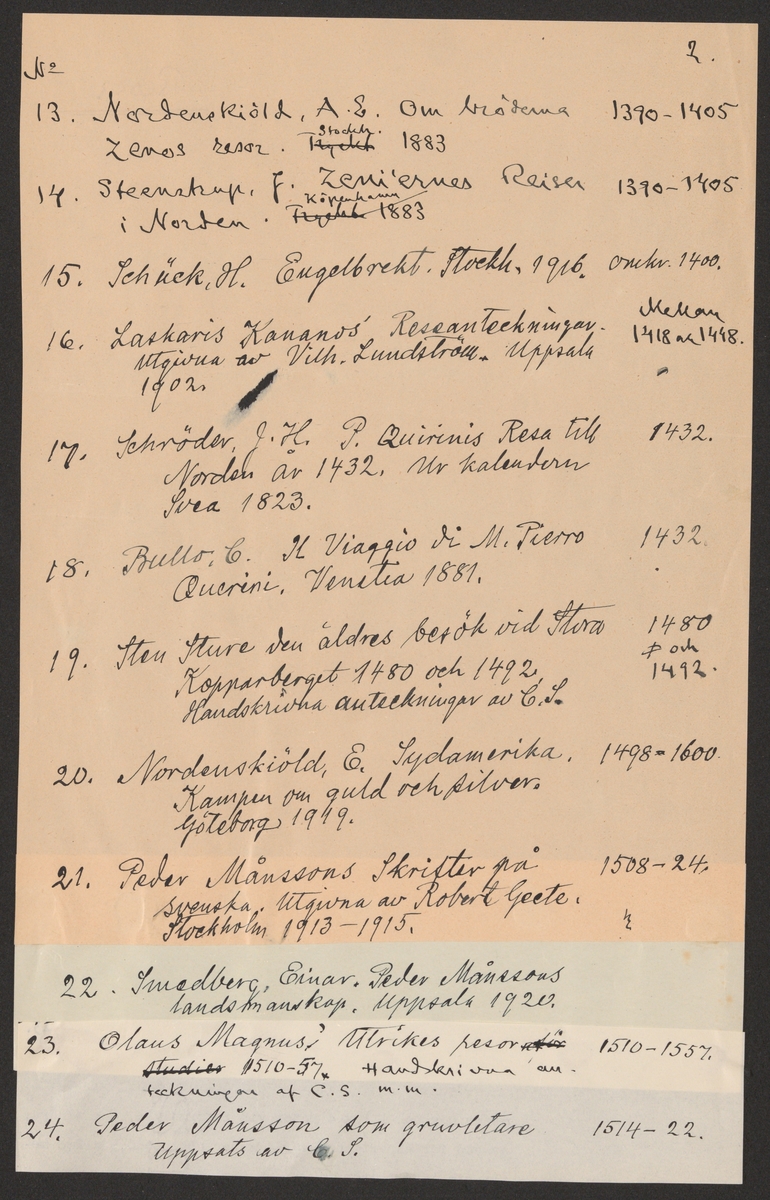 2.
No
13. Nordenskiöld, A. E. Om bröderna 1390-1405
Zenos resor. Stockh. 1883
14. Steenstrup, J. Zeni'ernes Reiser 1390-1405
i Norden. Köpenhamn 1883
15. Schück, H. Engelbrekt. Stockh. 1916. omkr. 1400.
16. Laskaris Kananos' Reseanteckningar. Mellan
Utgivna av Vilh. Lundström. Uppsala 1418 och 1448.
1902.
17. Schröder, J. H. P. Quirinis Resa till 1432.
Norden år 1432. Ur kalendern
Svea 1823.
18. Bullo, C. Il Viaggio di M. Pierro 1432.
Querini. Venetia 1881.
19. Sten Sture den äldres besök vid Stora 1480
Kopparberget 1480 och 1492. och
Handskrivna anteckningar av C. S. 1492.
20. Nordenskiöld, E. Sydamerika. 1498-1600.
Kampen om guld och silver.
Göteborg 1919.
21. Peder Månssons Skrifter på 1508-24.
svenska. Utgivna av Robert Geete.
Stockholm 1913-1915.
22. Smedberg, Einar. Peder Månssons
landsmanskap. Uppsala 1920.
23. Olaus Magnus' Utrikes resor 1510-1557.
studier 1510-57. Handskrivna an-
teckningar af C. S. m.m.
24. Peder Månsson som gruvletare 1514-22.
Uppsats av C. S.